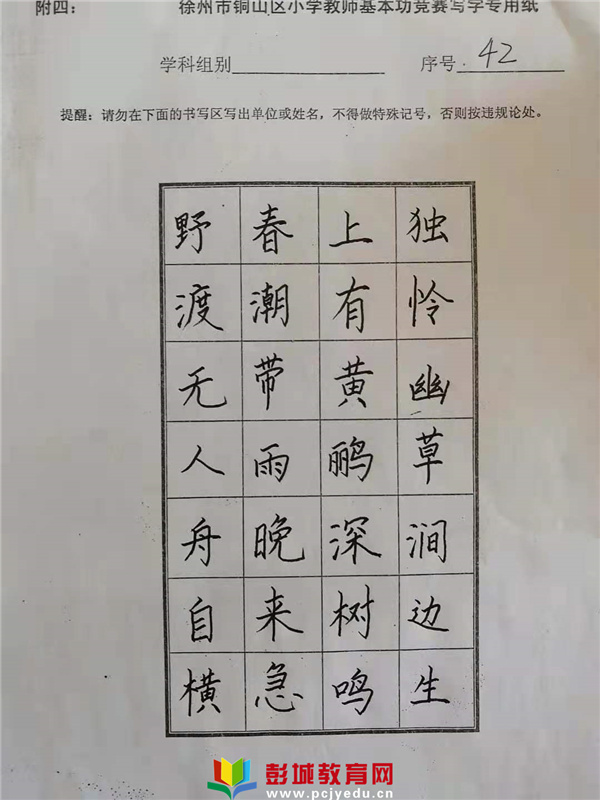 附四：
徐州市铜山区小学教师基本功竞赛写字专用纸
学科组别
序号 42
提醒：请勿在下面的书写区写出单位或姓名，不得做特殊记号，否则按违规论处。
独怜幽草涧边生
上有黄鹂深树鸣
春潮带雨晚来急
野渡无人舟自横
彭城教育网
www.pcjyedu.cn